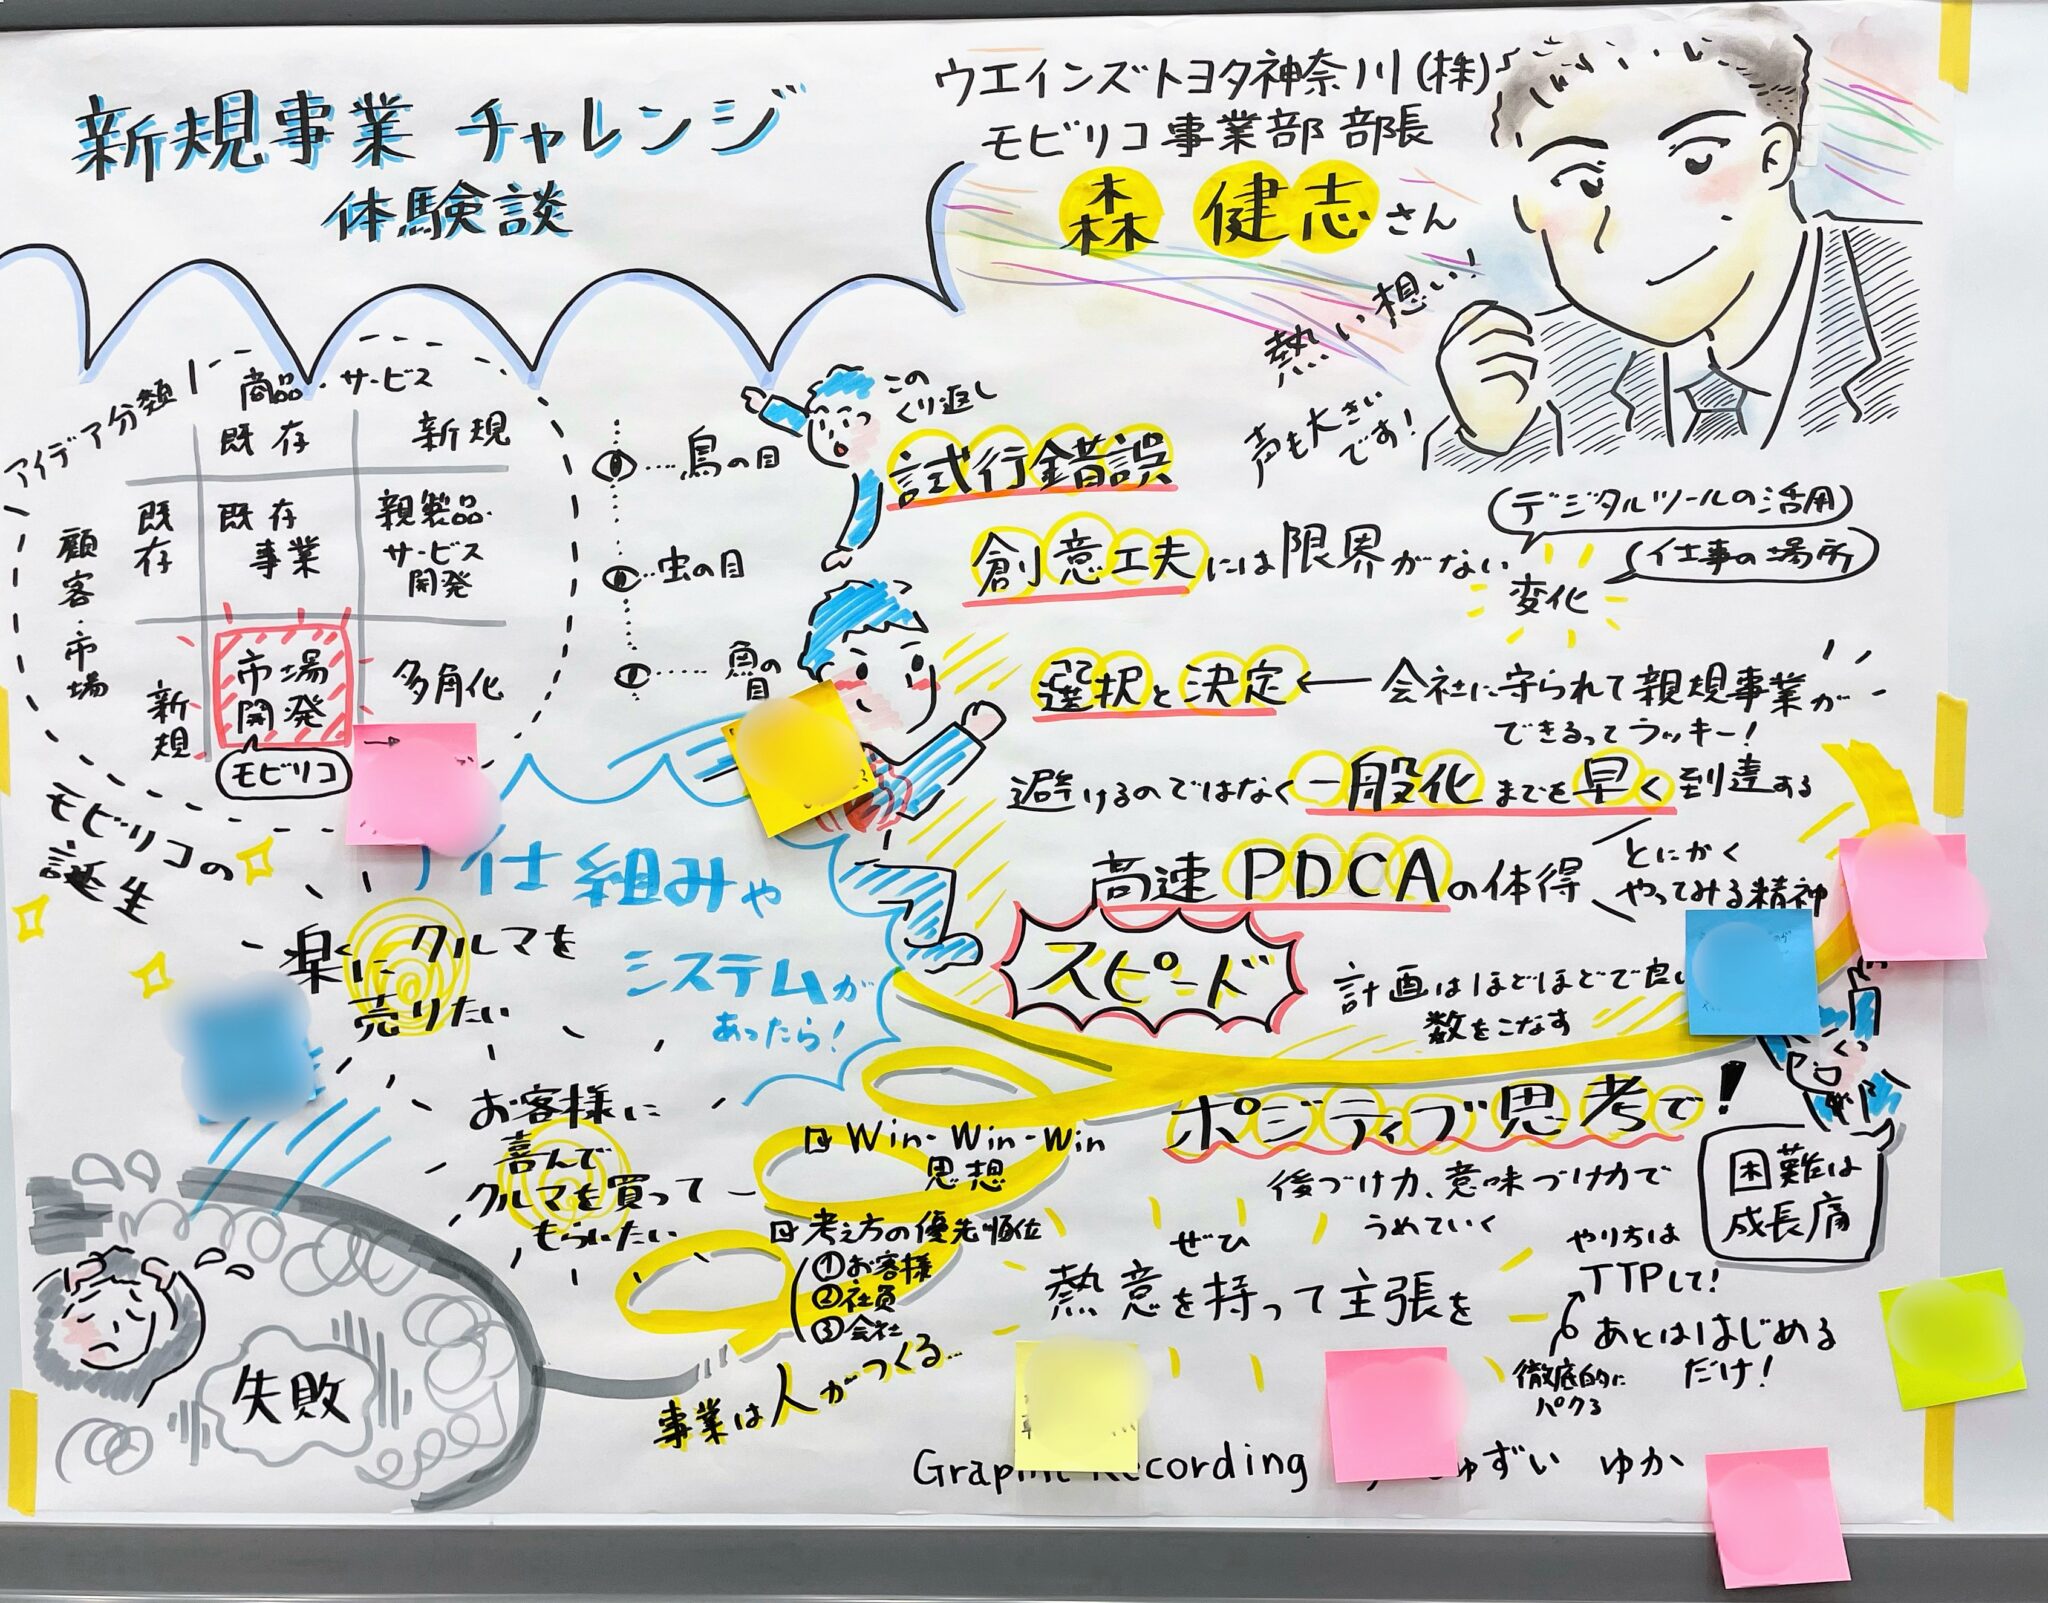 新規事業 チャレンジ
体験談
ウエインズトヨタ神奈川(株)
モビリコ事業部 部長
森 健志さん
熱い想い!
声も大きい
です!
アイデア分類
商品・サービス
既存 新規
顧客・市場
既存
既存
事業
親製品・
サービス
開発
新規
市場
開発
多角化
モビリコ
鳥の目
虫の目
魚の
目
この
くり返し
試行錯誤
創意工夫には限界がない
デジタルツールの活用
仕事の場所
変化
選択と決定 ← 会社に守られて親規事業が
できるってラッキー!
避けるのではなく一般化までを早く到達する
高速PDCAの体得
とにかく
やってみる精神
スピード
計画はほどほどで良い
数をこなす
モビリコの
誕生
楽にクルマを
売りたい
仕組みや
システムが
あったら!
お客様に
喜んで
クルマを買って
もらいたい
Win-Win-Win
思想
考え方の優先順位
①お客様
②社員
③会社
事業は人がつくる…
失敗
ポジティブ思考で!
後づけ力、意味づけ力で
うめていく
困難は
成長痛
ぜひ
熱意を持って主張を
やり方は
TTPして!
あとははじめる
だけ!
徹底的に
パクる
Graphic Recording
ゆずい ゆか